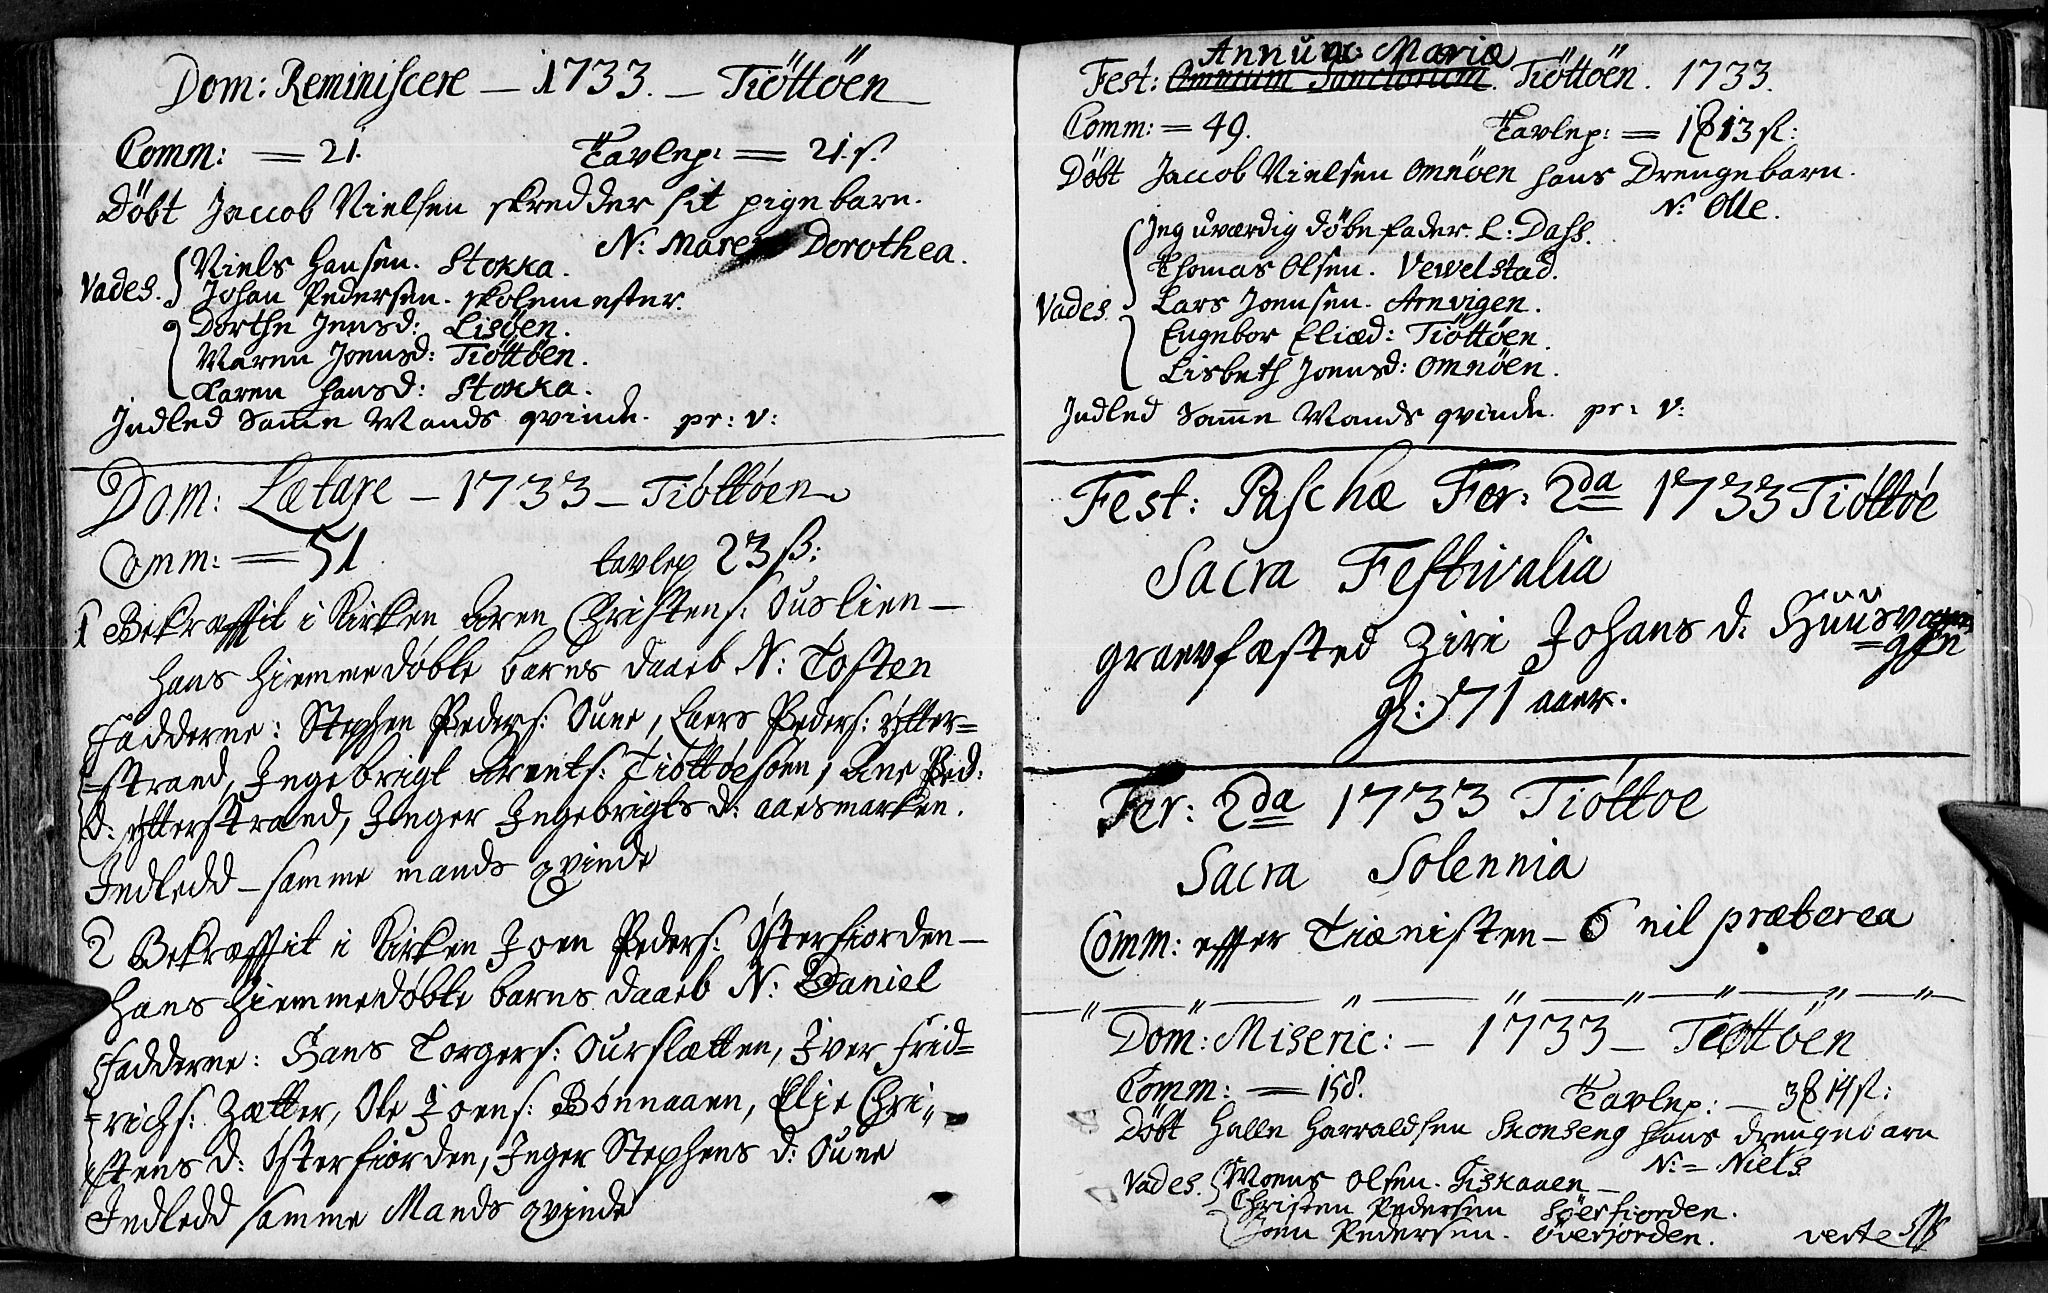 Dom: Reminiscere – 1733. – Tiöttöen
Comm: = 21. Tavlep: = 21. s.
Döbt Jaccob Nielsen skredder sit pigebarn.
N: Maren Dorothea.
Vades. Niels Hansen. Stokka.
Johan Pedersen. skolemester.
Dorthe Jensd: Lisöen.
Maren Joensd: Tiöttöen.
Karen Hansd: Stokka.
Indled Samme Mands qvinde. pr: v:
Dom: Lætare – 1733 – Tiöttöen
Comm: = 51 tavlep 23 ß:
1 Bekræfftit i Kirken Aren Christens: Ouslien –
hans hiemmedøbte barns daab N: Tosten
Fadderne: Stephen Peders: Oune, Laers Peders: ÿtter=
=strand, Ingebrigt Arents: Tiöttöesöen, Ane Ped:
d: ÿtterstrand, Inger Ingebrigts d: aaesmarken.
Indledd – samme mands qvinde
2 Bekræfftit i Kirken Joen Peders: Østerfiorden –
hans hiemmedøbte barns daab N: Daniel
Fadderne: Hans Torgers: Ourslætten, Iver Frid=
=richs: Zætter, Ole Joens: Bønnaaen, Elie Chri=
stens d: Østerfiorden, Inger Stephens d: Oune
Indledd samme Mands qvinde
Annunc: Mariæ
Fest: Omnium Sanctorum. Tiöttöen. 1733.
Comm: = 49. Tavlep: = 1 13 ß:
Döbt Jaccob Nielsen Omnöen hans Drengebarn.
N: Olle.
Jeg uværdig döbefader L: Dass.
Thomas Olsen. Vewelstad.
Vades. Lars Joensen. Arnvigen.
Engebor Eliæd: Tiöttöen.
Lisbeth Joensd: Omnöen.
Indled Samme Mands qvinde. pr: v:
Fest: Paschæ Fer: 2da 1733 Tiöttöe
Sacra Festivalia
graevfæsted Ziri Johans d: Huusvo
=gen
gl: 71 aaer.
Fer: 2da 1733 Tiöttöe
Sacra Solennia
Comm: effter Tiænisten – 6 nil præterea
Dom: Miseric: – 1733 – Tiöttöen
Comm: = 158. Tavlep: – 3 14 ß:
Döbt Halle Harraldsen Skonseng hans drengebarn
N: = Niels
Vades. Moens Olsen. Fiskaaen –
Christen Pedersen Söerfiorden.
Joen Pedersen. Överjorden. verte